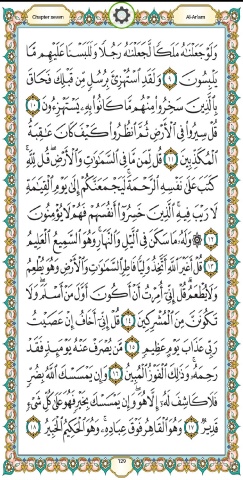 Chapter seven
Al-An'am
وَلَوْ جَعَلْنَٰهُ مَلَكًا لَّجَعَلْنَٰهُ رَجُلًا وَلَلَبَسْنَا عَلَيْهِم مَّا
يَلْبِسُونَ ٩ وَلَقَدِ ٱسْتُهْزِئَ بِرُسُلٍ مِّن قَبْلِكَ فَحَاقَ
بِٱلَّذِينَ سَخِرُوا۟ مِنْهُم مَّا كَانُوا۟ بِهِۦ يَسْتَهْزِءُونَ ١٠
قُلْ سِيرُوا۟ فِى ٱلْأَرْضِ ثُمَّ ٱنظُرُوا۟ كَيْفَ كَانَ عَٰقِبَةُ
ٱلْمُكَذِّبِينَ ١١ قُل لِّمَن مَّا فِى ٱلسَّمَٰوَٰتِ وَٱلْأَرْضِ قُل لِّلَّهِ
كَتَبَ عَلَىٰ نَفْسِهِ ٱلرَّحْمَةَ لَيَجْمَعَنَّكُمْ إِلَىٰ يَوْمِ ٱلْقِيَٰمَةِ
لَا رَيْبَ فِيهِ ٱلَّذِينَ خَسِرُوٓا۟ أَنفُسَهُمْ فَهُمْ لَا يُؤْمِنُونَ
١٢ ۞ وَلَهُۥ مَا سَكَنَ فِى ٱلَّيْلِ وَٱلنَّهَارِ وَهُوَ ٱلسَّمِيعُ ٱلْعَلِيمُ
١٣ قُلْ أَغَيْرَ ٱللَّهِ أَتَّخِذُ وَلِيًّا فَاطِرِ ٱلسَّمَٰوَٰتِ وَٱلْأَرْضِ وَهُوَ يُطْعِمُ
وَلَا يُطْعَمُ قُلْ إِنِّىٓ أُمِرْتُ أَنْ أَكُونَ أَوَّلَ مَنْ أَسْلَمَ وَلَا
تَكُونَنَّ مِنَ ٱلْمُشْرِكِينَ ١٤ قُلْ إِنِّىٓ أَخَافُ إِنْ عَصَيْتُ
رَبِّى عَذَابَ يَوْمٍ عَظِيمٍ ١٥ مَّن يُصْرَفْ عَنْهُ يَوْمَئِذٍ فَقَدْ
رَحِمَهُۥ وَذَٰلِكَ ٱلْفَوْزُ ٱلْمُبِينُ ١٦ وَإِن يَمْسَسْكَ ٱللَّهُ بِضُرٍّ
فَلَا كَاشِفَ لَهُۥٓ إِلَّا هُوَ وَإِن يَمْسَسْكَ بِخَيْرٍ فَهُوَ عَلَىٰ كُلِّ شَىْءٍ
قَدِيرٌ ١٧ وَهُوَ ٱلْقَاهِرُ فَوْقَ عِبَادِهِۦ وَهُوَ ٱلْحَكِيمُ ٱلْخَبِيرُ ١٨
129